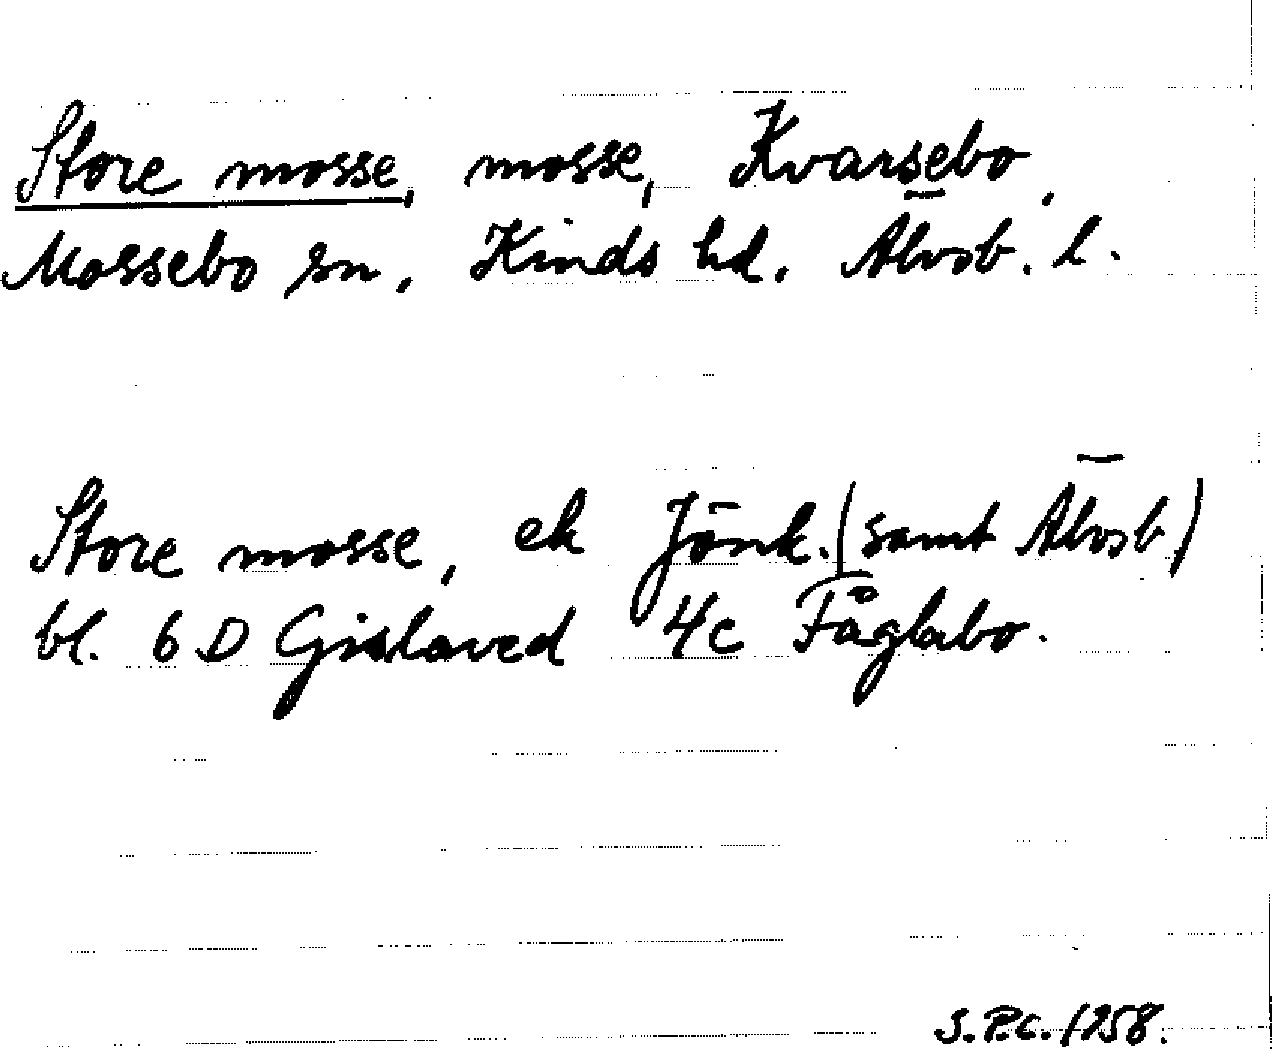 Store mosse, mosse, Kvarsebo,
Mossebo sn, Kinds hd. Älvsb. l.
Store mosse, ek Jönk. (samt Älvsb)
bl. 6 D Gislaved 4c Fåglabo.
S.P.C. 1958.